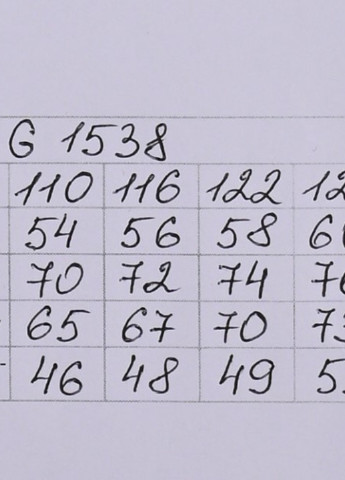 G 1538
110 116 122
54 56 58
70 72 74
65 67 70
46 48 49